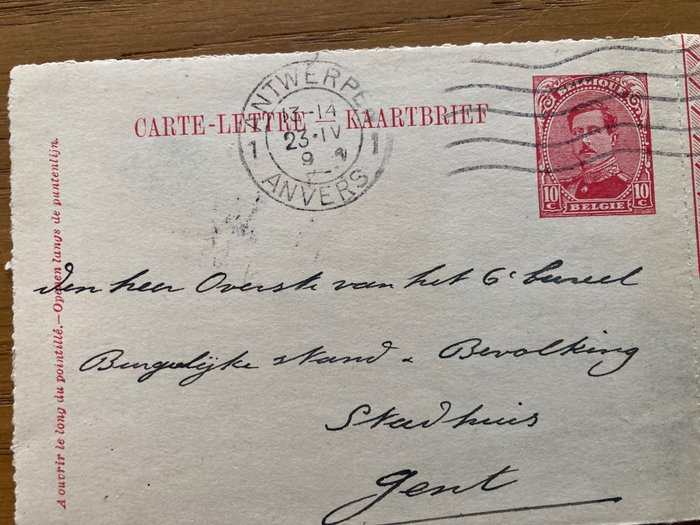 CARTE-LETTRE — KAARTBRIEF
ANTWERPEN
13-14
23·IV
9
1 1
ANVERS
BELGIQUE
10 C 10 C
BELGIË
Den heer Overste van het 6e bureel
Burgelijke stand & Bevolking
Stadhuis
Gent
A ouvrir le long du pointillé.—Openen langs de puntenlijn.